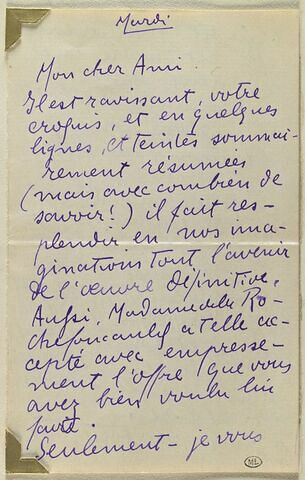 Mardi
Mon cher Ami.
Il est ravissant, votre
croquis, et en quelques
lignes, et teintes sommai-
rement résumées
(mais avec combien de
savoir!) il fait res-
plendir en nos ima-
ginations tout l'avenir
de l'œuvre définitive.
Aussi, Madame de la Ro-
chefoucauld a telle ac-
cepté avec empresse-
ment l'offre que vous
avez bien voulu lui
faire.
Seulement - je vous
ML